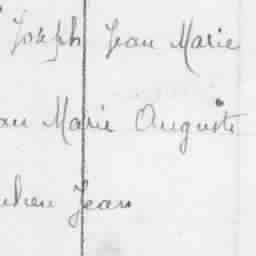 Joseph Jean Marie
an Marie Auguste
ulien Jean